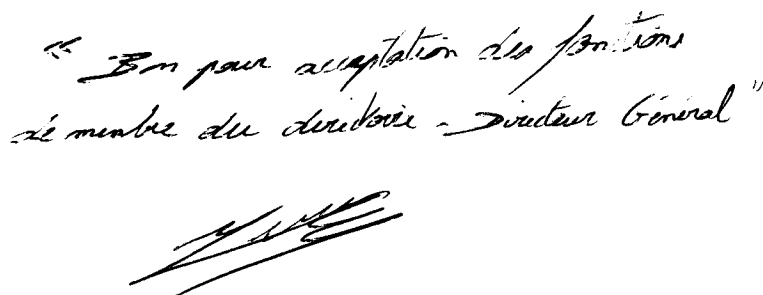 " Bon pour acceptation des fonctions
de membre du directoire - Directeur Général "